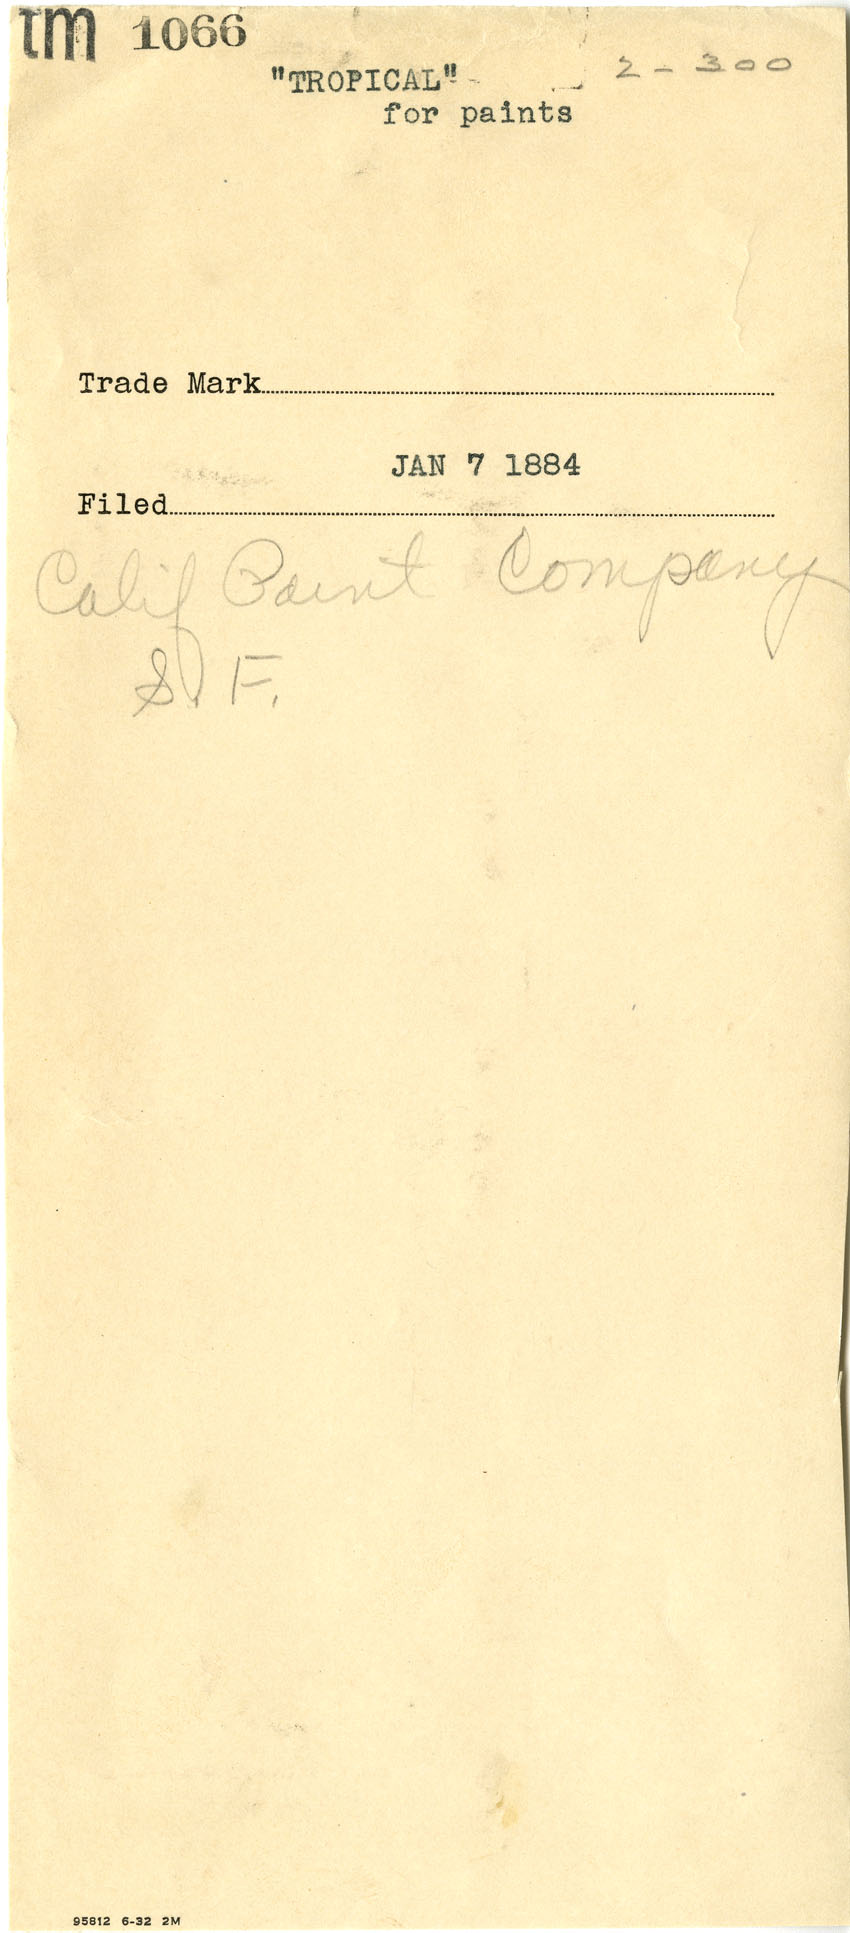 tm 1066
2-300
"TROPICAL"
for paints
Trade Mark
JAN 7 1884
Filed
Calif Paint Company
S. F.
95812 6-32 2M